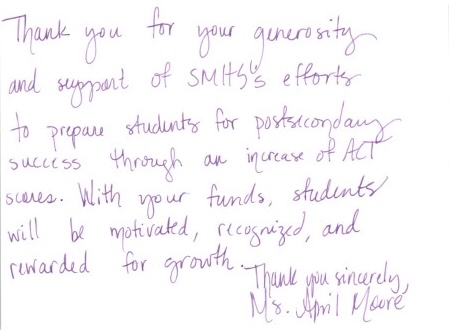 Thank you for your generosity
and support of SMHS's efforts
to prepare students for postsecondary
success through an increase of ACT
scores. With your funds, students
will be motivated, recognized, and
rewarded for growth.
Thank you sincerely,
Ms. April Moore